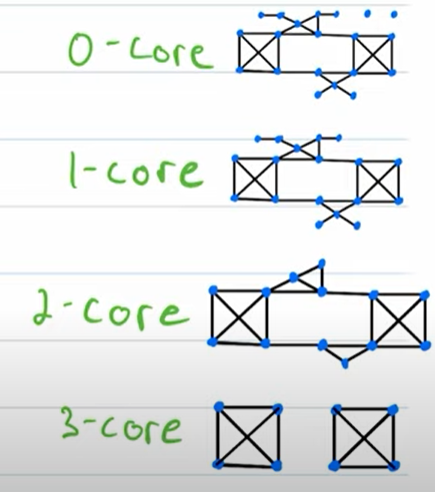 0-core
1-core
2-core
3-core